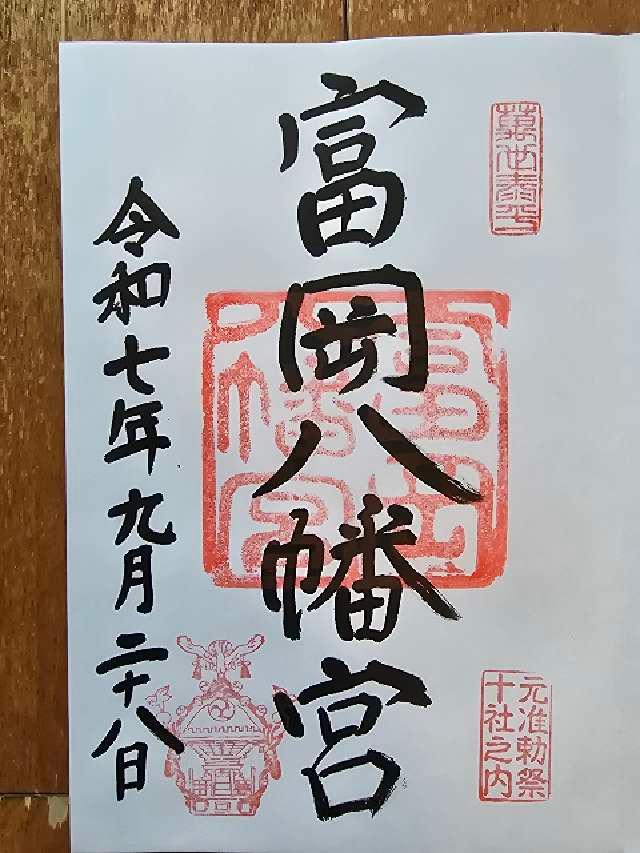 萬世泰平
元准勅祭
十社之内
富岡八幡宮
富岡八幡宮
令和七年九月二十八日